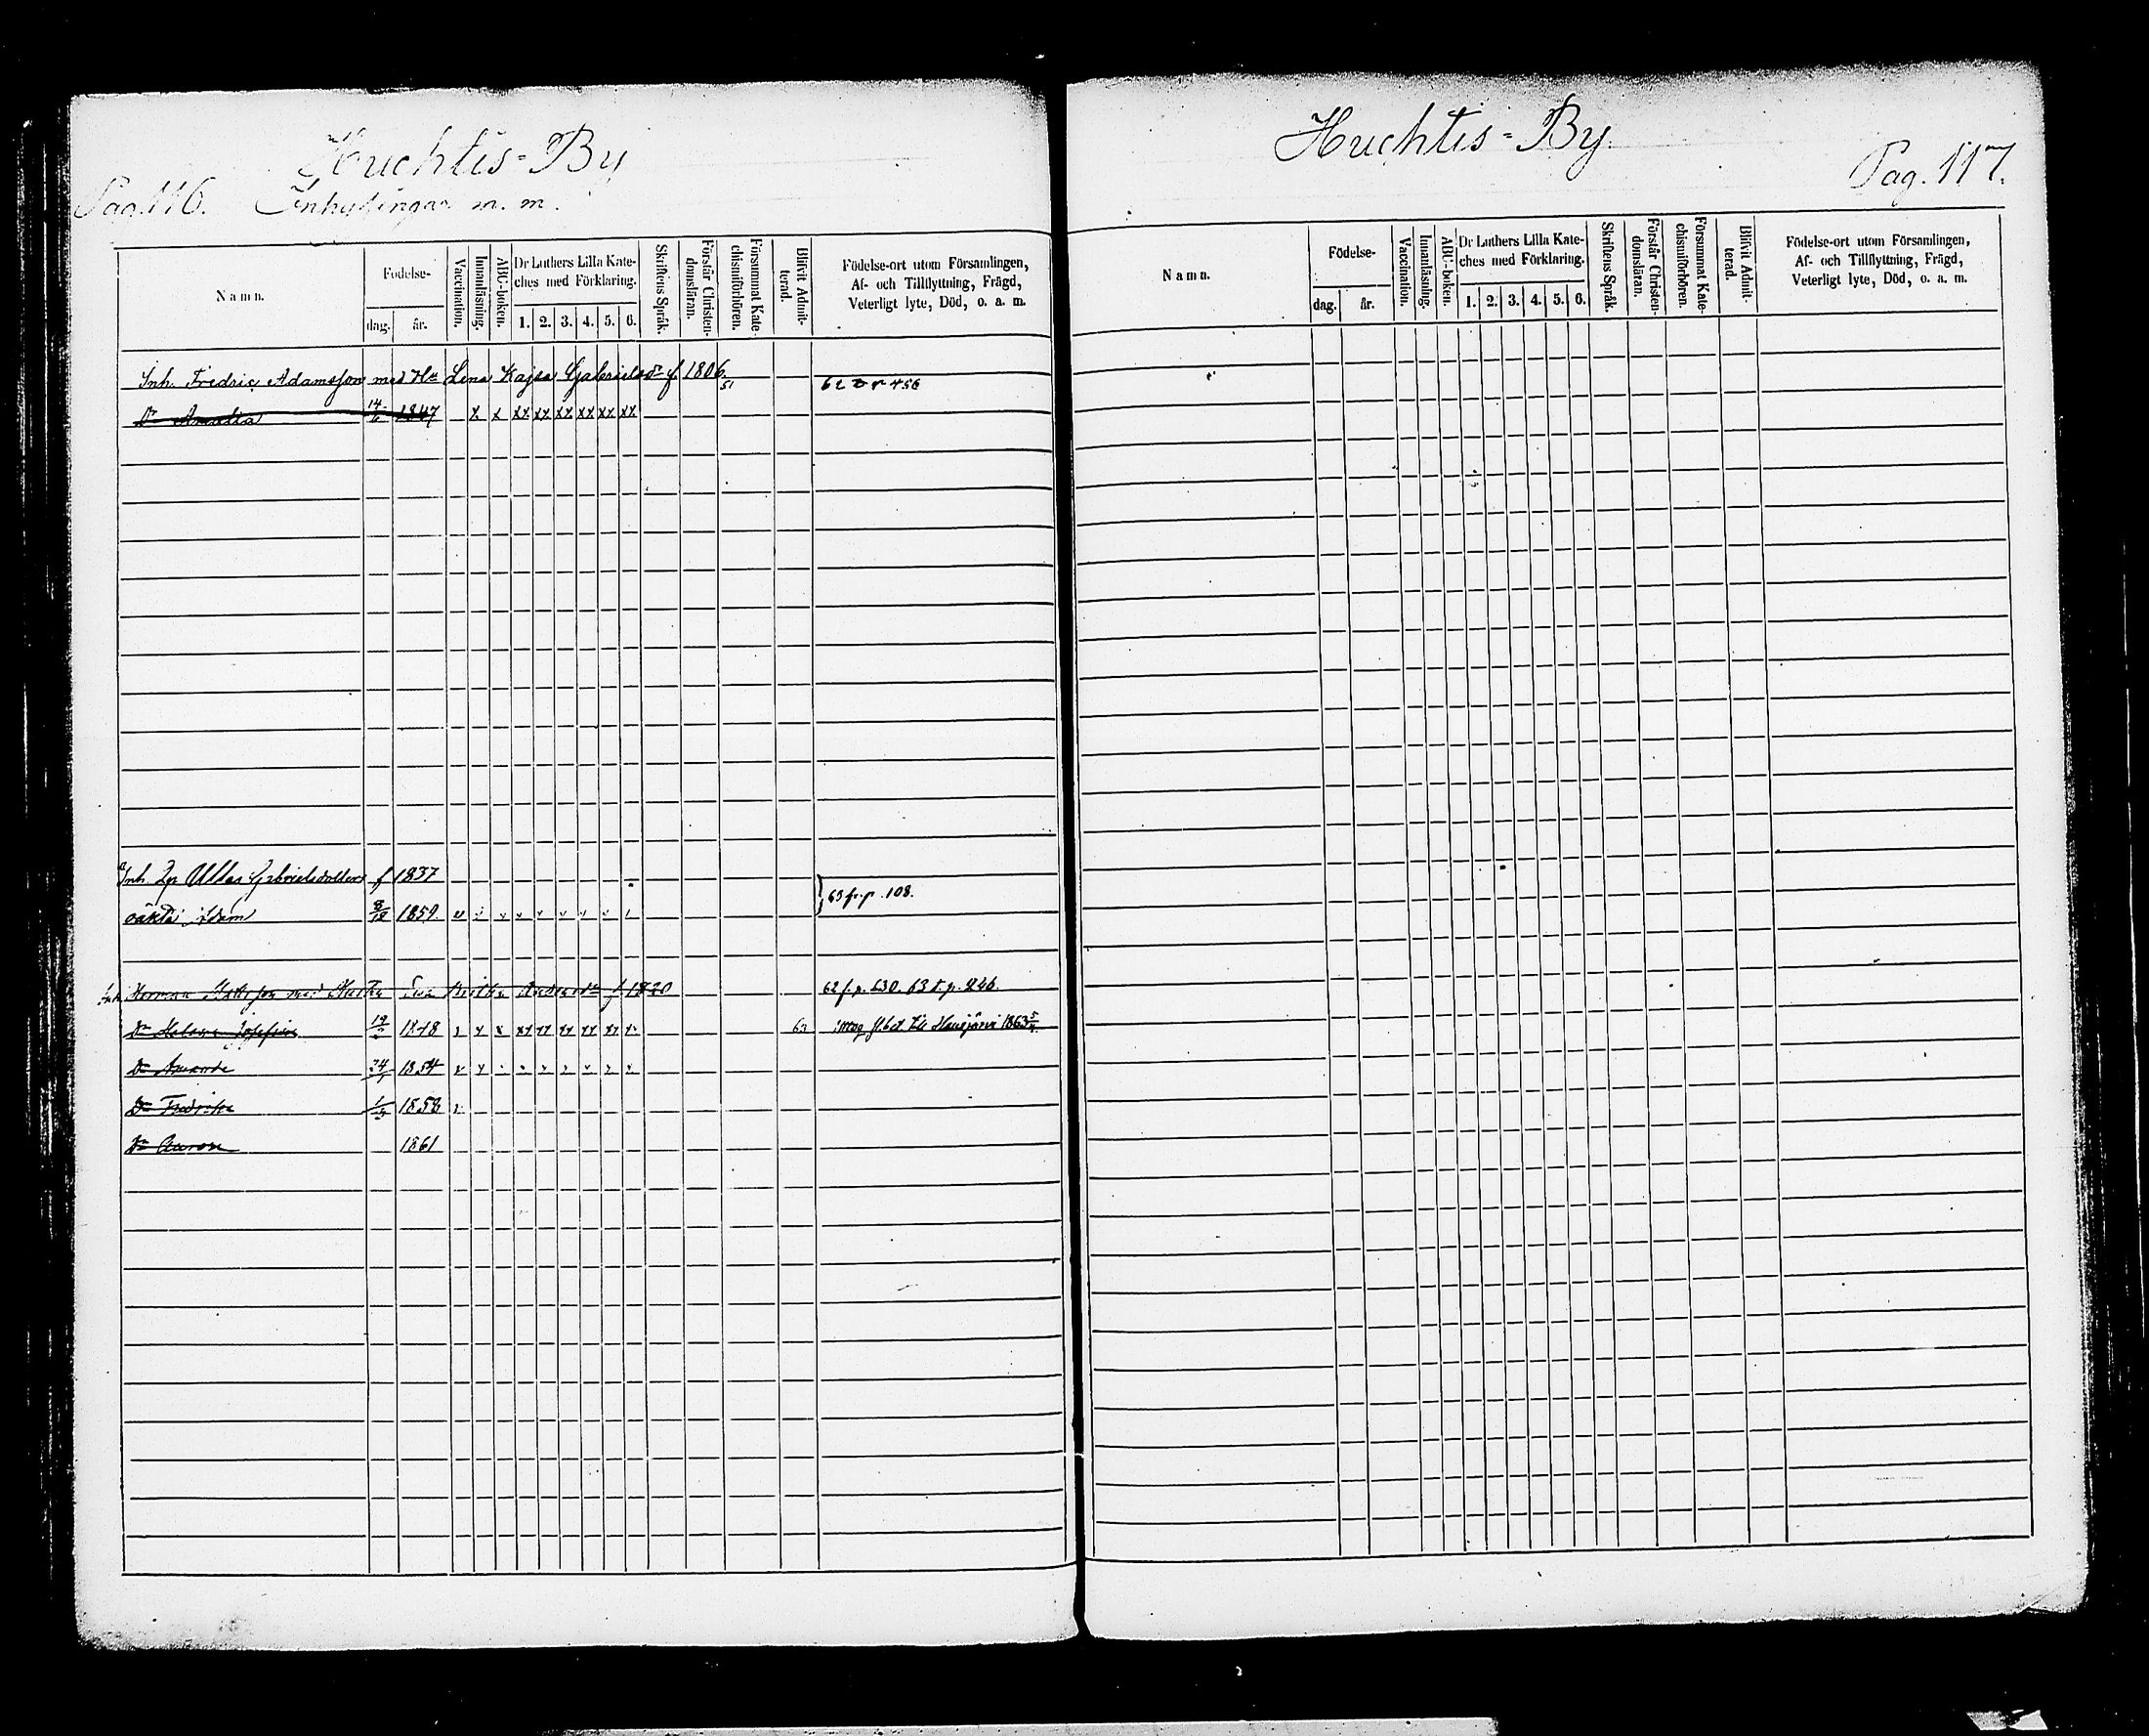 Huchtis-By
Pag. 116. Inhysingar m. m.
Namn.
Födelse-
dag.
år.
Vaccination.
Innanläsning.
ABC-boken.
Dr Luthers Lilla Kate-
ches med Förklaring.
1. 2. 3. 4. 5. 6.
Skriftens Språk.
Förstår Christen-
domsläran.
Försummat Kate-
chismiförhören.
Blifvit Admit-
terad.
Födelse-ort utom Församlingen,
Af- och Tillflyttning, Frägd,
Veterligt lyte, Död, o. a. m.
Inh. Fredric Adamsson med Hu Lena Kajsa Gabrielsdr f. 1806. 51 62
Dr Amalia 14/6 1847 x x xx xx xx xx xx xx
Inh. Ulla Gabrielsdotter f 1837
oäkta Adam 8/12 1859 63 f. p. 108.
Inh. Herman med Hustru Eva f 1820 62 f. p. 630. 63 t. p. 246.
Dr Helena Josefina 1848 63 flbet til Hausjärvi 1863
Dr Amanda 24 1854
Dr Fredrika 1858
Dr Aurora 1861
Huchtis-By.
Pag. 117.
Namn.
Födelse-
dag.
år.
Vaccination.
Innanläsning.
ABC-boken.
Dr Luthers Lilla Kate-
ches med Förklaring.
1. 2. 3. 4. 5. 6.
Skriftens Språk.
Förstår Christen-
domsläran.
Försummat Kate-
chismiförhören.
Blifvit Admit-
terad.
Födelse-ort utom Församlingen,
Af- och Tillflyttning, Frägd,
Veterligt lyte, Död, o. a. m.